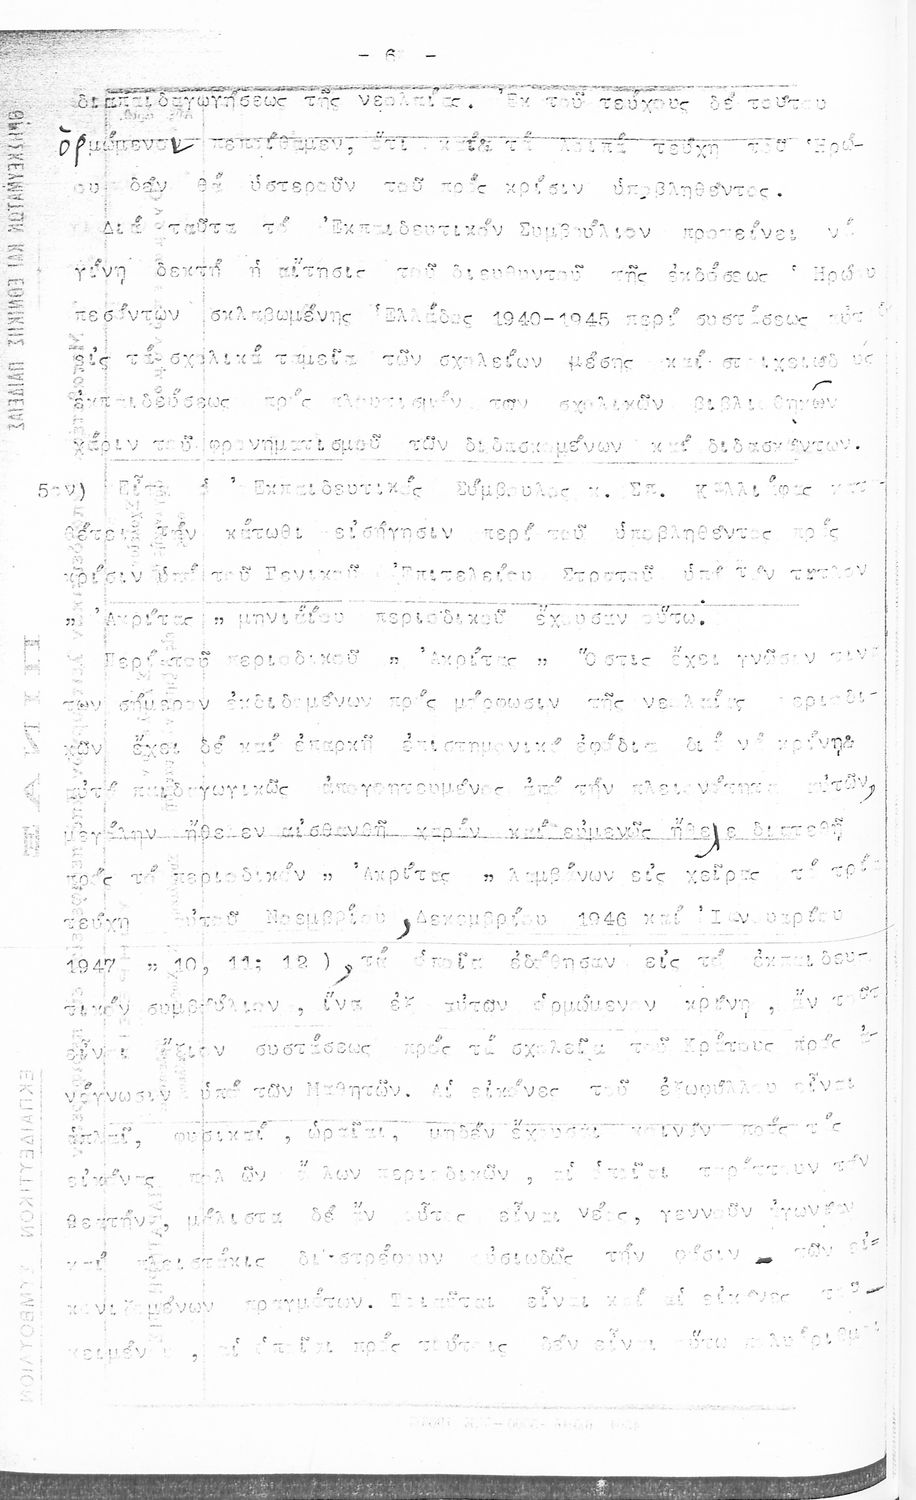 - 6 -
διαπαιδαγωγήσεως τῆς νεολαίας. Ἐκ τοῦ τεύχους δέ τούτου
ὁρμώμενοι πεποίθαμεν, ὅτι καί τά λοιπά τεύχη τοῦ Ἡρώ-
ου δέν θά ὑστεροῦν τοῦ πρός κρίσιν ὑποβληθέντος.
Διά ταῦτα τό Ἐκπαιδευτικόν Συμβούλιον προτείνει νά
γίνῃ δεκτή ἡ αἴτησις τοῦ διευθυντοῦ τῆς ἐκδόσεως Ἡρώου
πεσόντων σκλαβωμένης Ἑλλάδος 1940-1945 περί συστάσεως αὐτοῦ
εἰς τά σχολικά ταμεῖα τῶν σχολείων μέσης καί στοιχειώδους
ἐκπαιδεύσεως πρός πλουτισμόν των σχολικῶν βιβλιοθηκῶν
χάριν τοῦ φρονηματισμοῦ τῶν διδασκομένων καί διδασκόντων.
5ον) Εἶτα ὁ Ἐκπαιδευτικός Σύμβουλος κ. Σπ. Καλλιάφας κατα-
θέτει τήν κάτωθι εἰσήγησιν περί τοῦ ὑποβληθέντος πρός
κρίσιν ὑπό τοῦ Γενικοῦ Ἐπιτελείου Στρατοῦ ὑπό τόν τιτλον
„ Ἀκρίτας „ μηνιαίου περιοδικοῦ ἔχουσαν οὕτω.
Περί τοῦ περιοδικοῦ „ Ἀκρίτας „ Ὅστις ἔχει γνῶσιν τινα
τῶν σήμερον ἐκδιδομένων πρός μόρφωσιν τῆς νεολαίας περιοδι-
κῶν ἔχει δέ καί ἐπαρκῆ ἐπιστημονικά ἐφόδια διά νά κρίνῃ
αὐτά παιδαγωγικῶς ἀπογοητευμένος ἀπό τήν πλειονότητα αὐτῶν,
μεγάλην ἤθελεν αἰσθανθῆ χαράν καί εὐμενῶς ἤθελε διατεθῆ
πρός τό περιοδικόν „ Ἀκρίτας „ λαμβάνων εἰς χεῖρας τά τρία
τεύχη αὐτοῦ Νοεμβρίου, Δεκεμβρίου 1946 καί Ἰανουαρίου
1947 „ 10, 11; 12 ), τά ὁποῖα ἐδόθησαν εἰς τό ἐκπαιδευ-
τικόν συμβούλιον , ἵνα ἐξ αὐτων ὁρμώμενον κρίνῃ , ἄν τοῦτο
εἶναι ἄξιον συστάσεως πρός τά σχολεῖα τοῦ Κράτους πρός ἀ-
νάγνωσιν ὑπό τῶν Μαθητῶν. Αἱ εἰκόνες τοῦ ἐξωφύλλου εἶναι
ἁπλαῖ, φυσικαί , ὡραῖαι, μηδέν ἔχουσαι κοινόν πρός τάς
εἰκόνας πολλῶν ἄλλων περιοδικῶν , αἱ ὁποῖαι ταράττουν τόν
θεατήν, μάλιστα δέ ἄν οὗτος εἶναι νέος, γεννοῦν ἀγωνίαν
καί πλειστάκις διαστρέφουν οὐσιωδῶς τήν φύσιν τῶν εἰ-
κονιζομένων πραγμάτων. Τοιαῦται εἶναι καί αἱ εἰκόνες τοῦ
κειμένου , αἱ ὁποῖαι πρός τούτοις δέν εἶναι οὕτω πολυάριθμοι
ΕΚΠΑΙΔΕΥΤΙΚΟΝ ΣΥΜΒΟΥΛΙΟΝ
ΘΡΗΣΚΕΥΜΑΤΩΝ ΚΑΙ ΕΘΝΙΚΗΣ ΠΑΙΔΕΙΑΣ